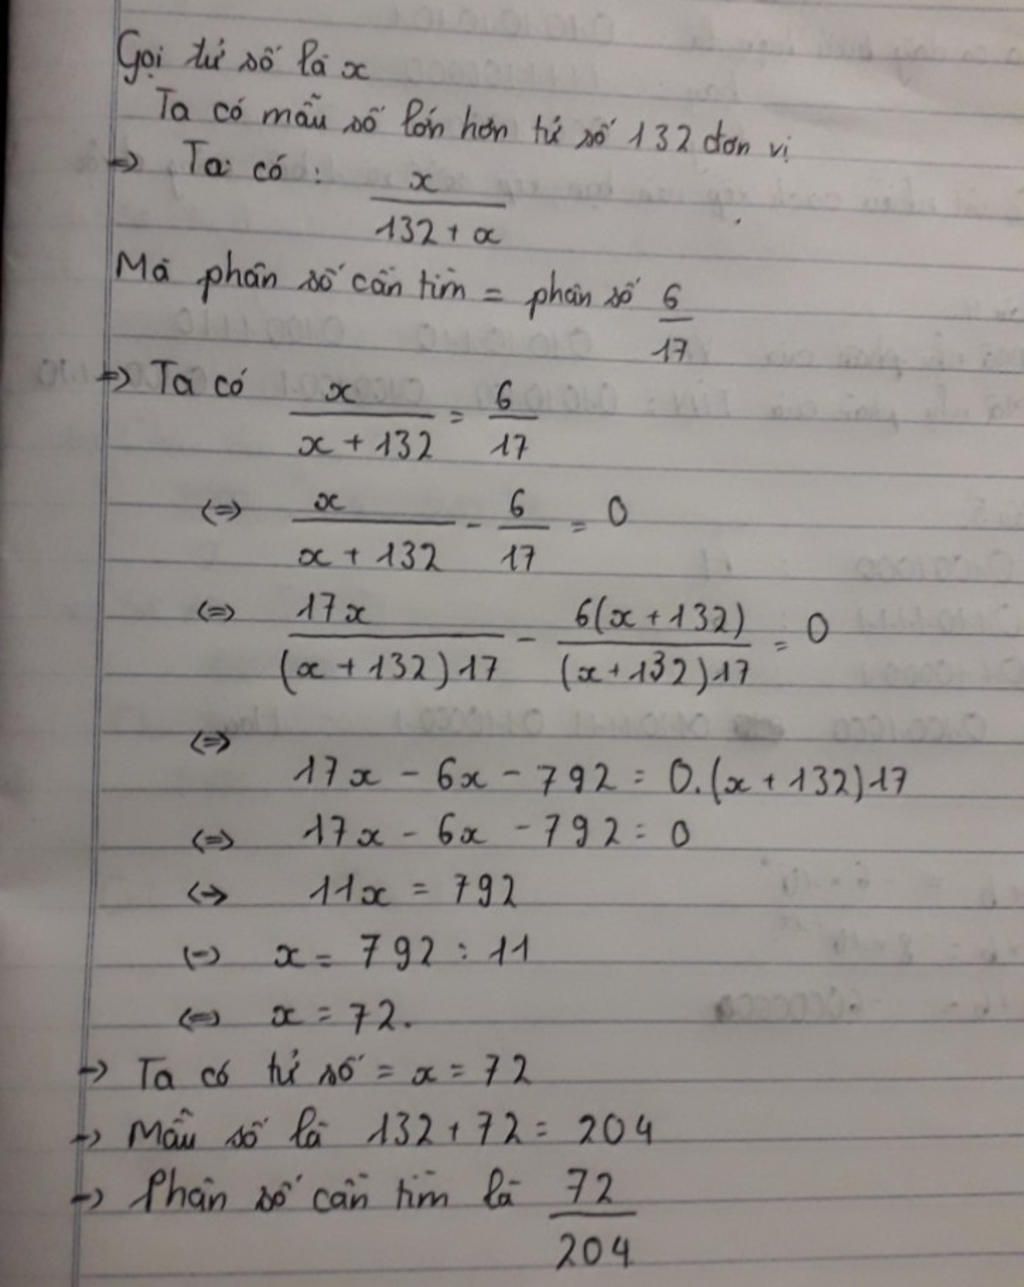 Gọi tử số là x
Ta có mẫu số lớn hơn tử số 132 đơn vị
=> Ta có: x / (132 + x)
Mà phân số cần tìm = phân số 6/17
=> Ta có x / (x + 132) = 6/17
<=> x / (x + 132) - 6/17 = 0
<=> 17x / ((x + 132)17) - 6(x + 132) / ((x + 132)17) = 0
<=>
17x - 6x - 792 = 0.(x + 132)17
<=> 17x - 6x - 792 = 0
<=> 11x = 792
<=> x = 792 : 11
<=> x = 72.
=> Ta có tử số = x = 72
=> Mẫu số là 132 + 72 = 204
=> Phân số cần tìm là 72/204